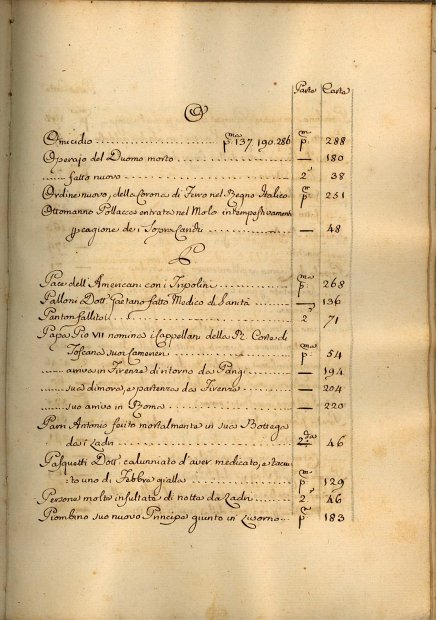 Parte Carte
O
Omicidio ........ p.ma 137. 190. 286 p.m 288
Operajo del Duomo morto ........ — 180
........ fatto nuovo ........ 2° 38
Ordine nuovo, della Corona di Ferro nel Regno Italico p.m 251
Ottomanno Pollacca entrata nel Molo intempestivamente
per cagione de i — 48
P
Pace dell'Americani con i Tripolini ........ p.ma 268
Palloni Dott. Gaetano fatto Medico di Sanità ........ — 136
Panton falliti ........ 2° 71
Papa Pio VII nomina i Cappellani della R. Corte di
Toscana suoi Camerieri ........ p.ma 54
........ arriva in Firenze di ritorno da Parigi ........ — 194
........ sua dimora, e partenza da Firenze ........ — 204
........ suo arrivo in Roma ........ — 220
Parri Antonio ferito mortalmente in sua Bottega
da i Ladri ........ 2.da 46
Pasquetti Dott. calunniato d'aver medicato, e taciu-
to uno di Febbre gialla ........ p.m 129
Persone molte insultate di notte da Ladri ........ 2° 46
Piombino suo nuovo Principe giunto in Livorno ... p.m 183